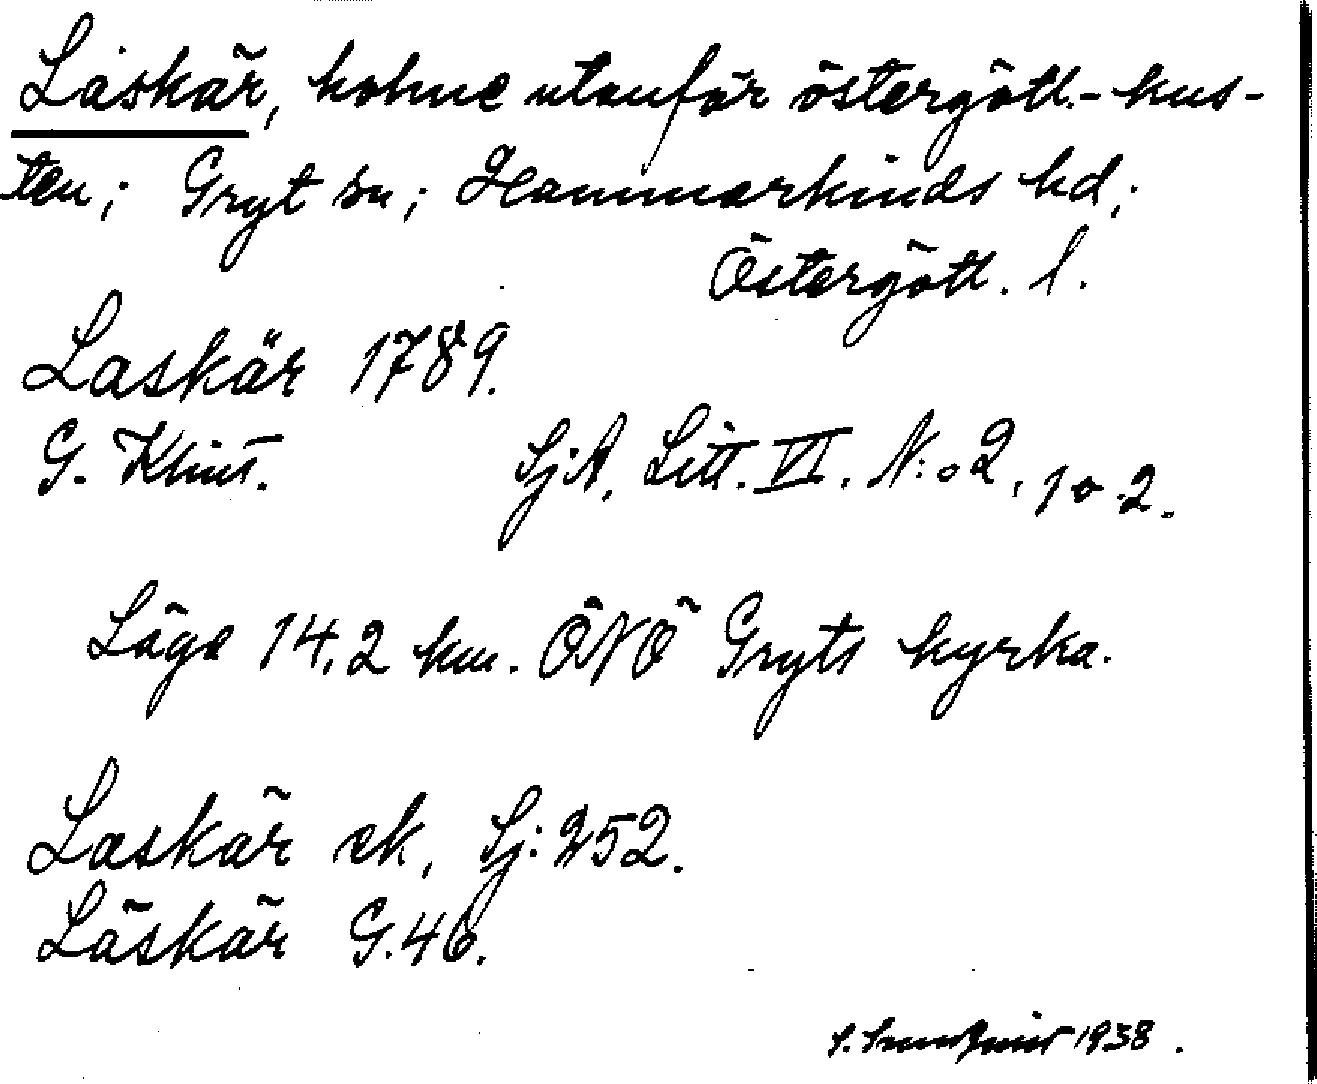 Låskär, holme utanför östergötl.-kus-
ten; Gryt sn; Hammarkinds hd;
Östergötl. l.
Laskär 1789.
G. Klint. Sj:A, Litt. VI. N:o 2, 1 o 2.
Läge 14,2 km. ÖNÖ Gryts kyrka.
Laskär ek, Sj: 252.
Läskär G.46.
S. 1938.